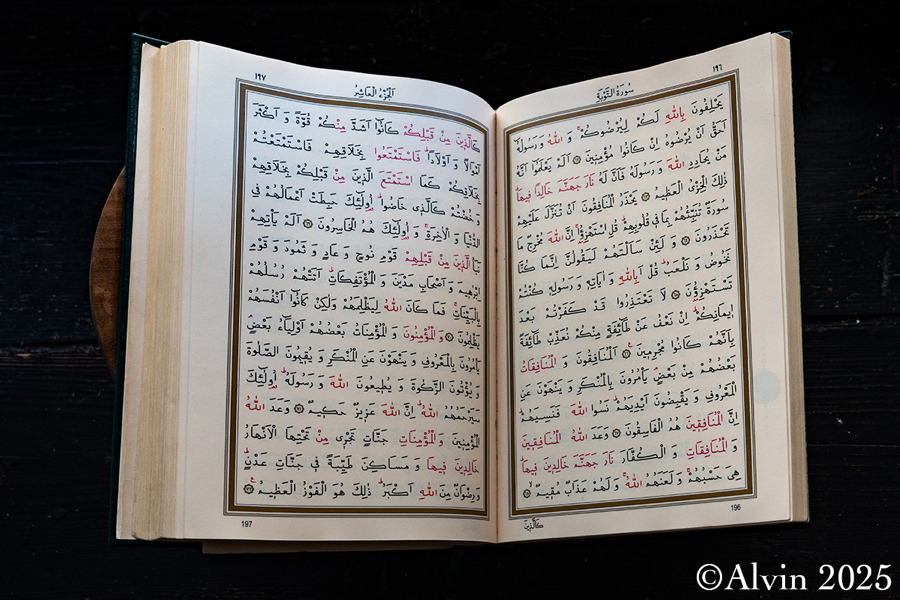 ١٩٦
سُورَةُ التَّوْبَةِ
يَحْلِفُونَ بِاللّٰهِ لَكُمْ لِيُرْضُوكُمْۚ وَ اللّٰهُ وَ رَسُولُهُ
اَحَقُّ اَنْ يُرْضُوهُ اِنْ كَانُوا مُؤْمِنِينَ ﴿٦٢﴾ اَلَمْ يَعْلَمُوا اَنَّهُ
مَنْ يُحَادِدِ اللّٰهَ وَ رَسُولَهُ فَاَنَّ لَهُ نَارَ جَهَنَّمَ خَالِدًا فِيهَاۜ
ذٰلِكَ الْخِزْىُ الْعَظِيمُ ﴿٦٣﴾ يَحْذَرُ الْمُنَافِقُونَ اَنْ تُنَزَّلَ عَلَيْهِمْ
سُورَةٌ تُنَبِّئُهُمْ بِمَا فِى قُلُوبِهِمْۜ قُلِ اسْتَهْزِؤُاۚ اِنَّ اللّٰهَ مُخْرِجٌ مَا
تَحْذَرُونَ ﴿٦٤﴾ وَ لَئِنْ سَاَلْتَهُمْ لَيَقُولُنَّ اِنَّمَا كُنَّا
نَخُوضُ وَ نَلْعَبُۜ قُلْ اَبِاللّٰهِ وَ اٰيَاتِهِ وَ رَسُولِهِ كُنْتُمْ
تَسْتَهْزِؤُنَ ﴿٦٥﴾ لَا تَعْتَذِرُوا قَدْ كَفَرْتُمْ بَعْدَ
اِيمَانِكُمْۜ اِنْ نَعْفُ عَنْ طَائِفَةٍ مِنْكُمْ نُعَذِّبْ طَائِفَةً
بِاَنَّهُمْ كَانُوا مُجْرِمِينَ ﴿٦٦﴾ اَلْمُنَافِقُونَ وَ الْمُنَافِقَاتُ
بَعْضُهُمْ مِنْ بَعْضٍۢ يَاْمُرُونَ بِالْمُنْكَرِ وَ يَنْهَوْنَ عَنِ
الْمَعْرُوفِ وَ يَقْبِضُونَ اَيْدِيَهُمْۜ نَسُوا اللّٰهَ فَنَسِيَهُمْۜ
اِنَّ الْمُنَافِقِينَ هُمُ الْفَاسِقُونَ ﴿٦٧﴾ وَعَدَ اللّٰهُ الْمُنَافِقِينَ
وَ الْمُنَافِقَاتِ وَ الْكُفَّارَ نَارَ جَهَنَّمَ خَالِدِينَ فِيهَاۜ
هِىَ حَسْبُهُمْۚ وَ لَعَنَهُمُ اللّٰهُۚ وَ لَهُمْ عَذَابٌ مُقِيمٌ ﴿٦٨﴾
196
كَالَّذِينَ
١٩٧
اَلْجُزْءُ الْعَاشِرُ
كَالَّذِينَ مِنْ قَبْلِكُمْ كَانُوا اَشَدَّ مِنْكُمْ قُوَّةً وَ اَكْثَرَ
اَمْوَالًا وَ اَوْلَادًاۜ فَاسْتَمْتَعُوا بِخَلَاقِهِمْ فَاسْتَمْتَعْتُمْ
بِخَلَاقِكُمْ كَمَا اسْتَمْتَعَ الَّذِينَ مِنْ قَبْلِكُمْ بِخَلَاقِهِمْ
وَ خُضْتُمْ كَالَّذِى خَاضُواۜ اُولٰئِكَ حَبِطَتْ اَعْمَالُهُمْ فِى
الدُّنْيَا وَ الْاٰخِرَةِۚ وَ اُولٰئِكَ هُمُ الْخَاسِرُونَ ﴿٦٩﴾ اَلَمْ يَاْتِهِمْ
نَبَاُ الَّذِينَ مِنْ قَبْلِهِمْ قَوْمِ نُوحٍ وَ عَادٍ وَ ثَمُودَ وَ قَوْمِ
اِبْرٰهِيمَ وَ اَصْحَابِ مَدْيَنَ وَ الْمُؤْتَفِكَاتِۜ اَتَتْهُمْ رُسُلُهُمْ
بِالْبَيِّنَاتِۚ فَمَا كَانَ اللّٰهُ لِيَظْلِمَهُمْ وَلٰكِنْ كَانُوا اَنْفُسَهُمْ
يَظْلِمُونَ ﴿٧٠﴾ وَ الْمُؤْمِنُونَ وَ الْمُؤْمِنَاتُ بَعْضُهُمْ اَوْلِيَاءُ بَعْضٍۢ
يَاْمُرُونَ بِالْمَعْرُوفِ وَ يَنْهَوْنَ عَنِ الْمُنْكَرِ وَ يُقِيمُونَ الصَّلٰوةَ
وَ يُؤْتُونَ الزَّكٰوةَ وَ يُطِيعُونَ اللّٰهَ وَ رَسُولَهُۜ اُولٰئِكَ
سَيَرْحَمُهُمُ اللّٰهُۜ اِنَّ اللّٰهَ عَزِيزٌ حَكِيمٌ ﴿٧١﴾ وَعَدَ اللّٰهُ
الْمُؤْمِنِينَ وَ الْمُؤْمِنَاتِ جَنَّاتٍ تَجْرِى مِنْ تَحْتِهَا الْاَنْهَارُ
خَالِدِينَ فِيهَا وَ مَسَاكِنَ طَيِّبَةً فِى جَنَّاتِ عَدْنٍۜ
وَ رِضْوَانٌ مِنَ اللّٰهِ اَكْبَرُۜ ذٰلِكَ هُوَ الْفَوْزُ الْعَظِيمُ ﴿٧٢﴾
197
©Alvin 2025